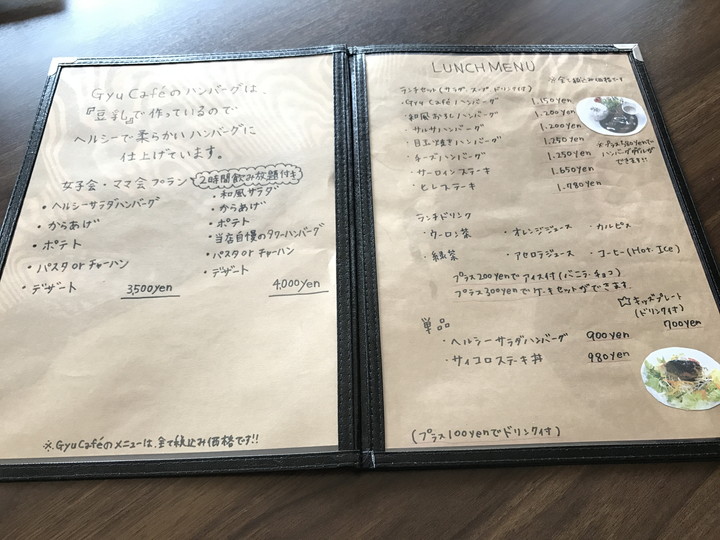 Gyu Caféのハンバーグは、
『豆乳』で作っているので
ヘルシーで柔らかいハンバーグに
仕上げています。
女子会・ママ会プラン
・ヘルシーサラダハンバーグ
・からあげ
・ポテト
・パスタorチャーハン
・デザート
3,500yen
2時間飲み放題付き
・和風サラダ
・からあげ
・ポテト
・当店自慢のタワーハンバーグ
・パスタorチャーハン
・デザート
4,000yen
※GyuCaféのメニューは、全て税込み価格です!!
LUNCH MENU
※全て税込み価格です
ランチセット(サラダ、スープ、ドリンク付)
・Gyu Café ハンバーグ 1.150yen
・和風おろしハンバーグ 1.200yen
・サルサハンバーグ 1.200yen
・目玉焼きハンバーグ 1.250yen
・チーズハンバーグ 1.250yen
・サーロインステーキ 1.650yen
・ヒレステーキ 1.780yen
※プラス580yenで
ハンバーグダブルが
できます!!
ランチドリンク
・ウーロン茶 ・オレンジジュース ・カルピス
・紅茶 ・アセロラジュース ・コーヒー(Hot. Ice)
プラス200yenでアイス付(バニラ・チョコ)
プラス300yenでケーキセットができます
☆キッズプレート
(ドリンク付)
700yen
単品
・ヘルシーサラダハンバーグ 900yen
・サイコロステーキ丼 980yen
(プラス100yenでドリンク付)